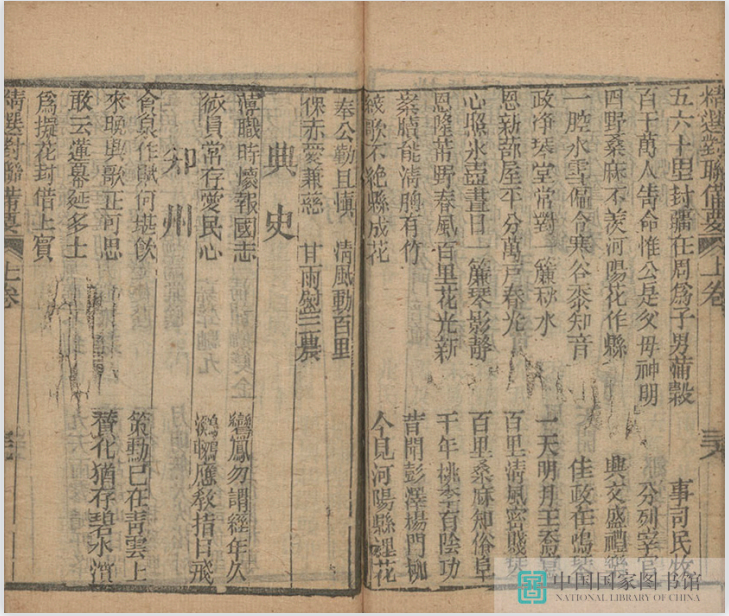 精選對聯備要 上卷
五六十里封疆在周爲子男蒲穀 事司民牧
百千萬人告命惟公是父母神明 分列宰官
四野桑麻不羨河陽花作縣 興文盛禮
一腔氷雪偏令寒谷黍知音 佳政在鳴琴
政淨琴堂常對一簾秋水 一天明月王喬
恩新蔀屋平分萬戸春光 百里清風宓賤琴
心照氷壺晝日一簾琴影靜 百里桑麻知俗阜
恩隆蔀野春風百里花光新 千年桃李有陰功
案牘能淸胸有竹 昔聞彭澤揚門柳
絃歌不絶縣成花 今見河陽縣裡花
奉公勤且愼 淸風動百里
保赤愛兼慈 甘雨盛三農
典史
薄職時懷報國志 鸞鳳勿謂經年久
微員常存愛民心 鸂鶒應敎指日飛
知州
食泉作賦何堪飮 策勳已在靑雲上
來晚興歌正可思 贊化猶存碧水濱
敢云蓮幕延多士
爲擬花封借上賓
精選對聯備要 上卷
中国国家图书馆
NATIONAL LIBRARY OF CHINA